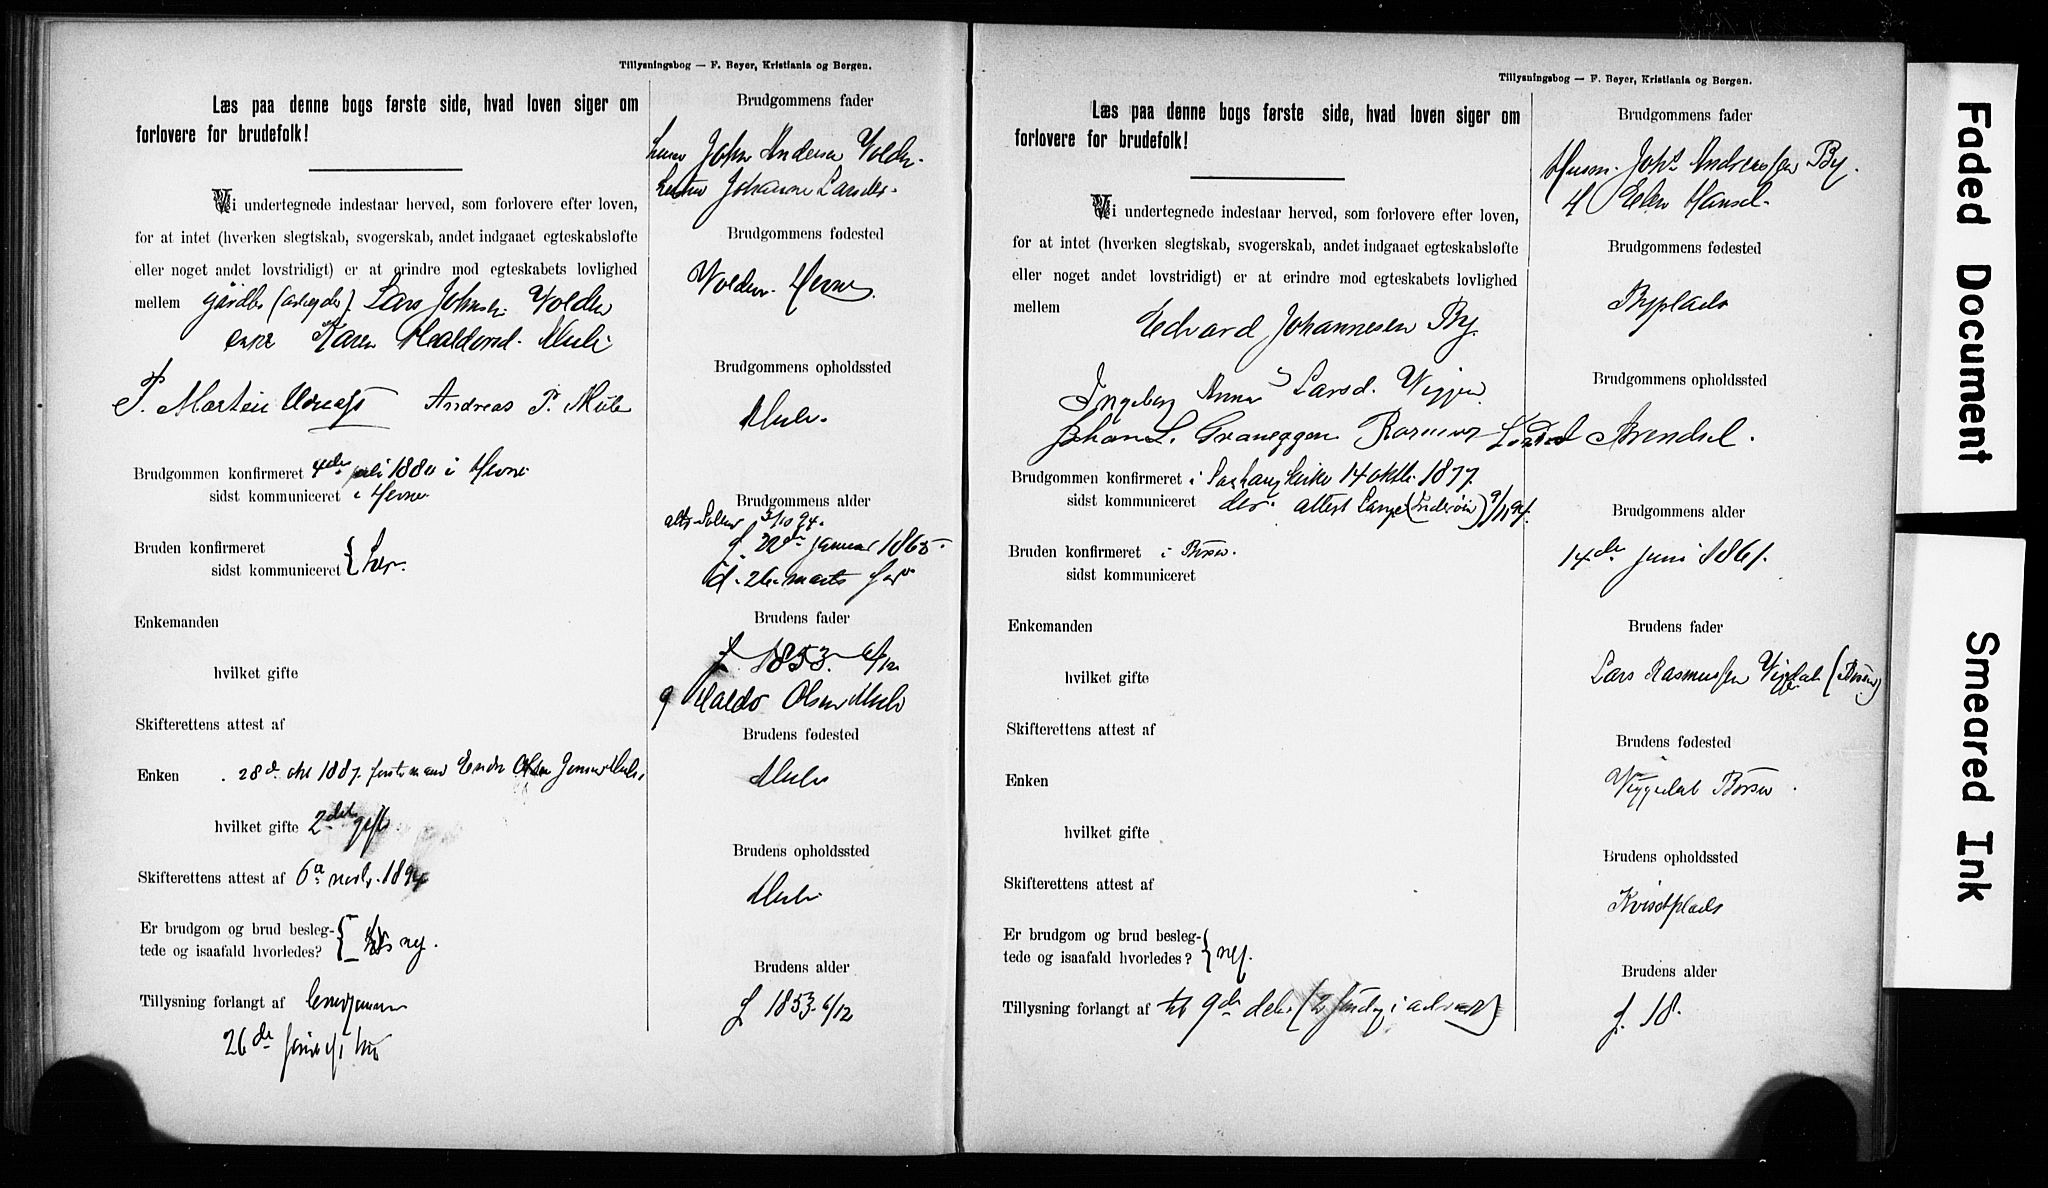 Tillysningsbog — F. Beyer, Kristiania og Bergen.
Læs paa denne bogs første side, hvad loven siger om
forlovere for brudefolk!
Vi undertegnede indestaar herved, som forlovere efter loven,
for at intet (hverken slegtskab, svogerskab, andet indgaaet egteskabsløfte
eller noget andet lovstridigt) er at erindre mod egteskabets lovlighed
mellem Lars Johns. Volden
enke Karen Haldorsd. Mule
Martin Andreas P. Mule
Brudgommen konfirmeret 4de juli 1880 i Hevne
sidst kommuniceret i Hevne
Bruden konfirmeret
sidst kommuniceret
Enkemanden
hvilket gifte
Skifterettens attest af
Enken 28de okt 1887
hvilket gifte 2det gifte
Skifterettens attest af 6te novbr. 1894
Er brudgom og brud besleg-
tede og isaafald hvorledes? nej.
Tillysning forlangt af
26de
Brudgommens fader
John Andersen Volden
Johanne Larsdr.
Brudgommens fødested
Volden Hevne.
Brudgommens opholdssted
Mule
Brudgommens alder
3/10 94.
f. 22de januar 1865
d. 26 marts
Brudens fader
f. 1853 6/12
Haldo Olsen Mule
Brudens fødested
Mule
Brudens opholdssted
Mule
Brudens alder
f 1853 6/12
Tillysningsbog — F. Beyer, Kristiania og Bergen.
Læs paa denne bogs første side, hvad loven siger om
forlovere for brudefolk!
Vi undertegnede indestaar herved, som forlovere efter loven,
for at intet (hverken slegtskab, svogerskab, andet indgaaet egteskabsløfte
eller noget andet lovstridigt) er at erindre mod egteskabets lovlighed
mellem
Edvard Johannesen By.
Ingeborg Anna Larsd. Viggen
Johan L. Graneggen Arendsel.
Brudgommen konfirmeret i kirke 14 oktb. 1877.
sidst kommuniceret der. attest 9/11 94.
Bruden konfirmeret i Børsen.
sidst kommuniceret
Enkemanden
hvilket gifte
Skifterettens attest af
Enken
hvilket gifte
Skifterettens attest af
Er brudgom og brud besleg-
tede og isaafald hvorledes? nej.
Tillysning forlangt af til 9de
Brudgommens fader
Husm. Johs Andreassen By.
H Elen Hansd.
Brudgommens fødested
Byplads
Brudgommens opholdssted
Brudgommens alder
14de juni 1861.
Brudens fader
Lars Rasmussen
Brudens fødested
Viggedal Børsen.
Brudens opholdssted
Kvistplads
Brudens alder
f. 18.
Faded Document
Smeared Ink